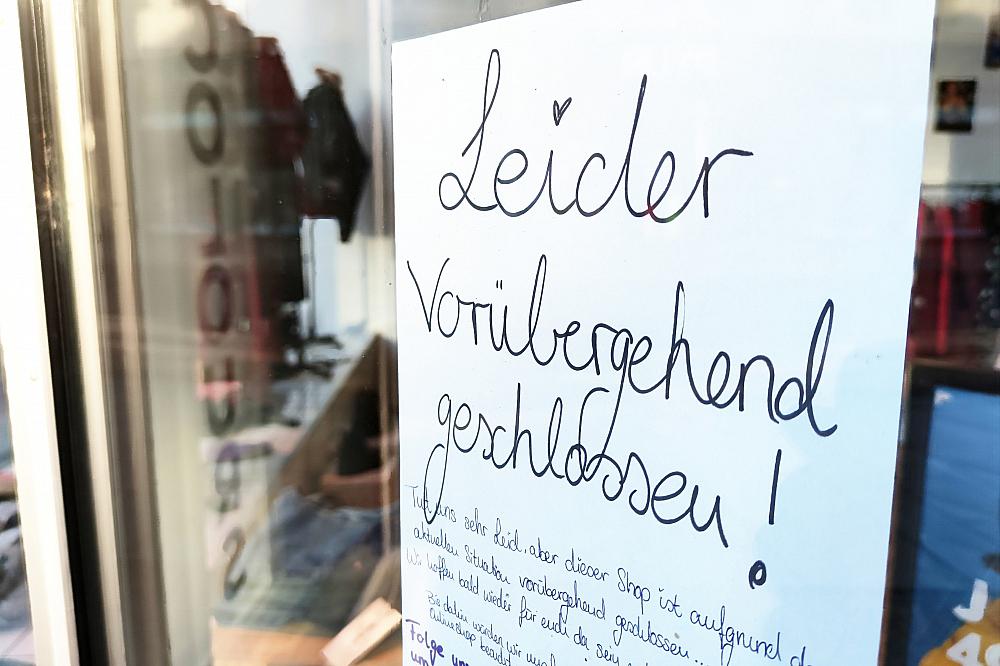 Leider
Vorübergehend
geschlossen!
Tut uns sehr Leid, aber dieser Shop ist aufgrund
aktuellen Situation vorübergehend geschlossen..
Wir hoffen bald wieder für euch da sein
Bis dahin würden wir uns
Onlineshop besucht
Folge uns
um